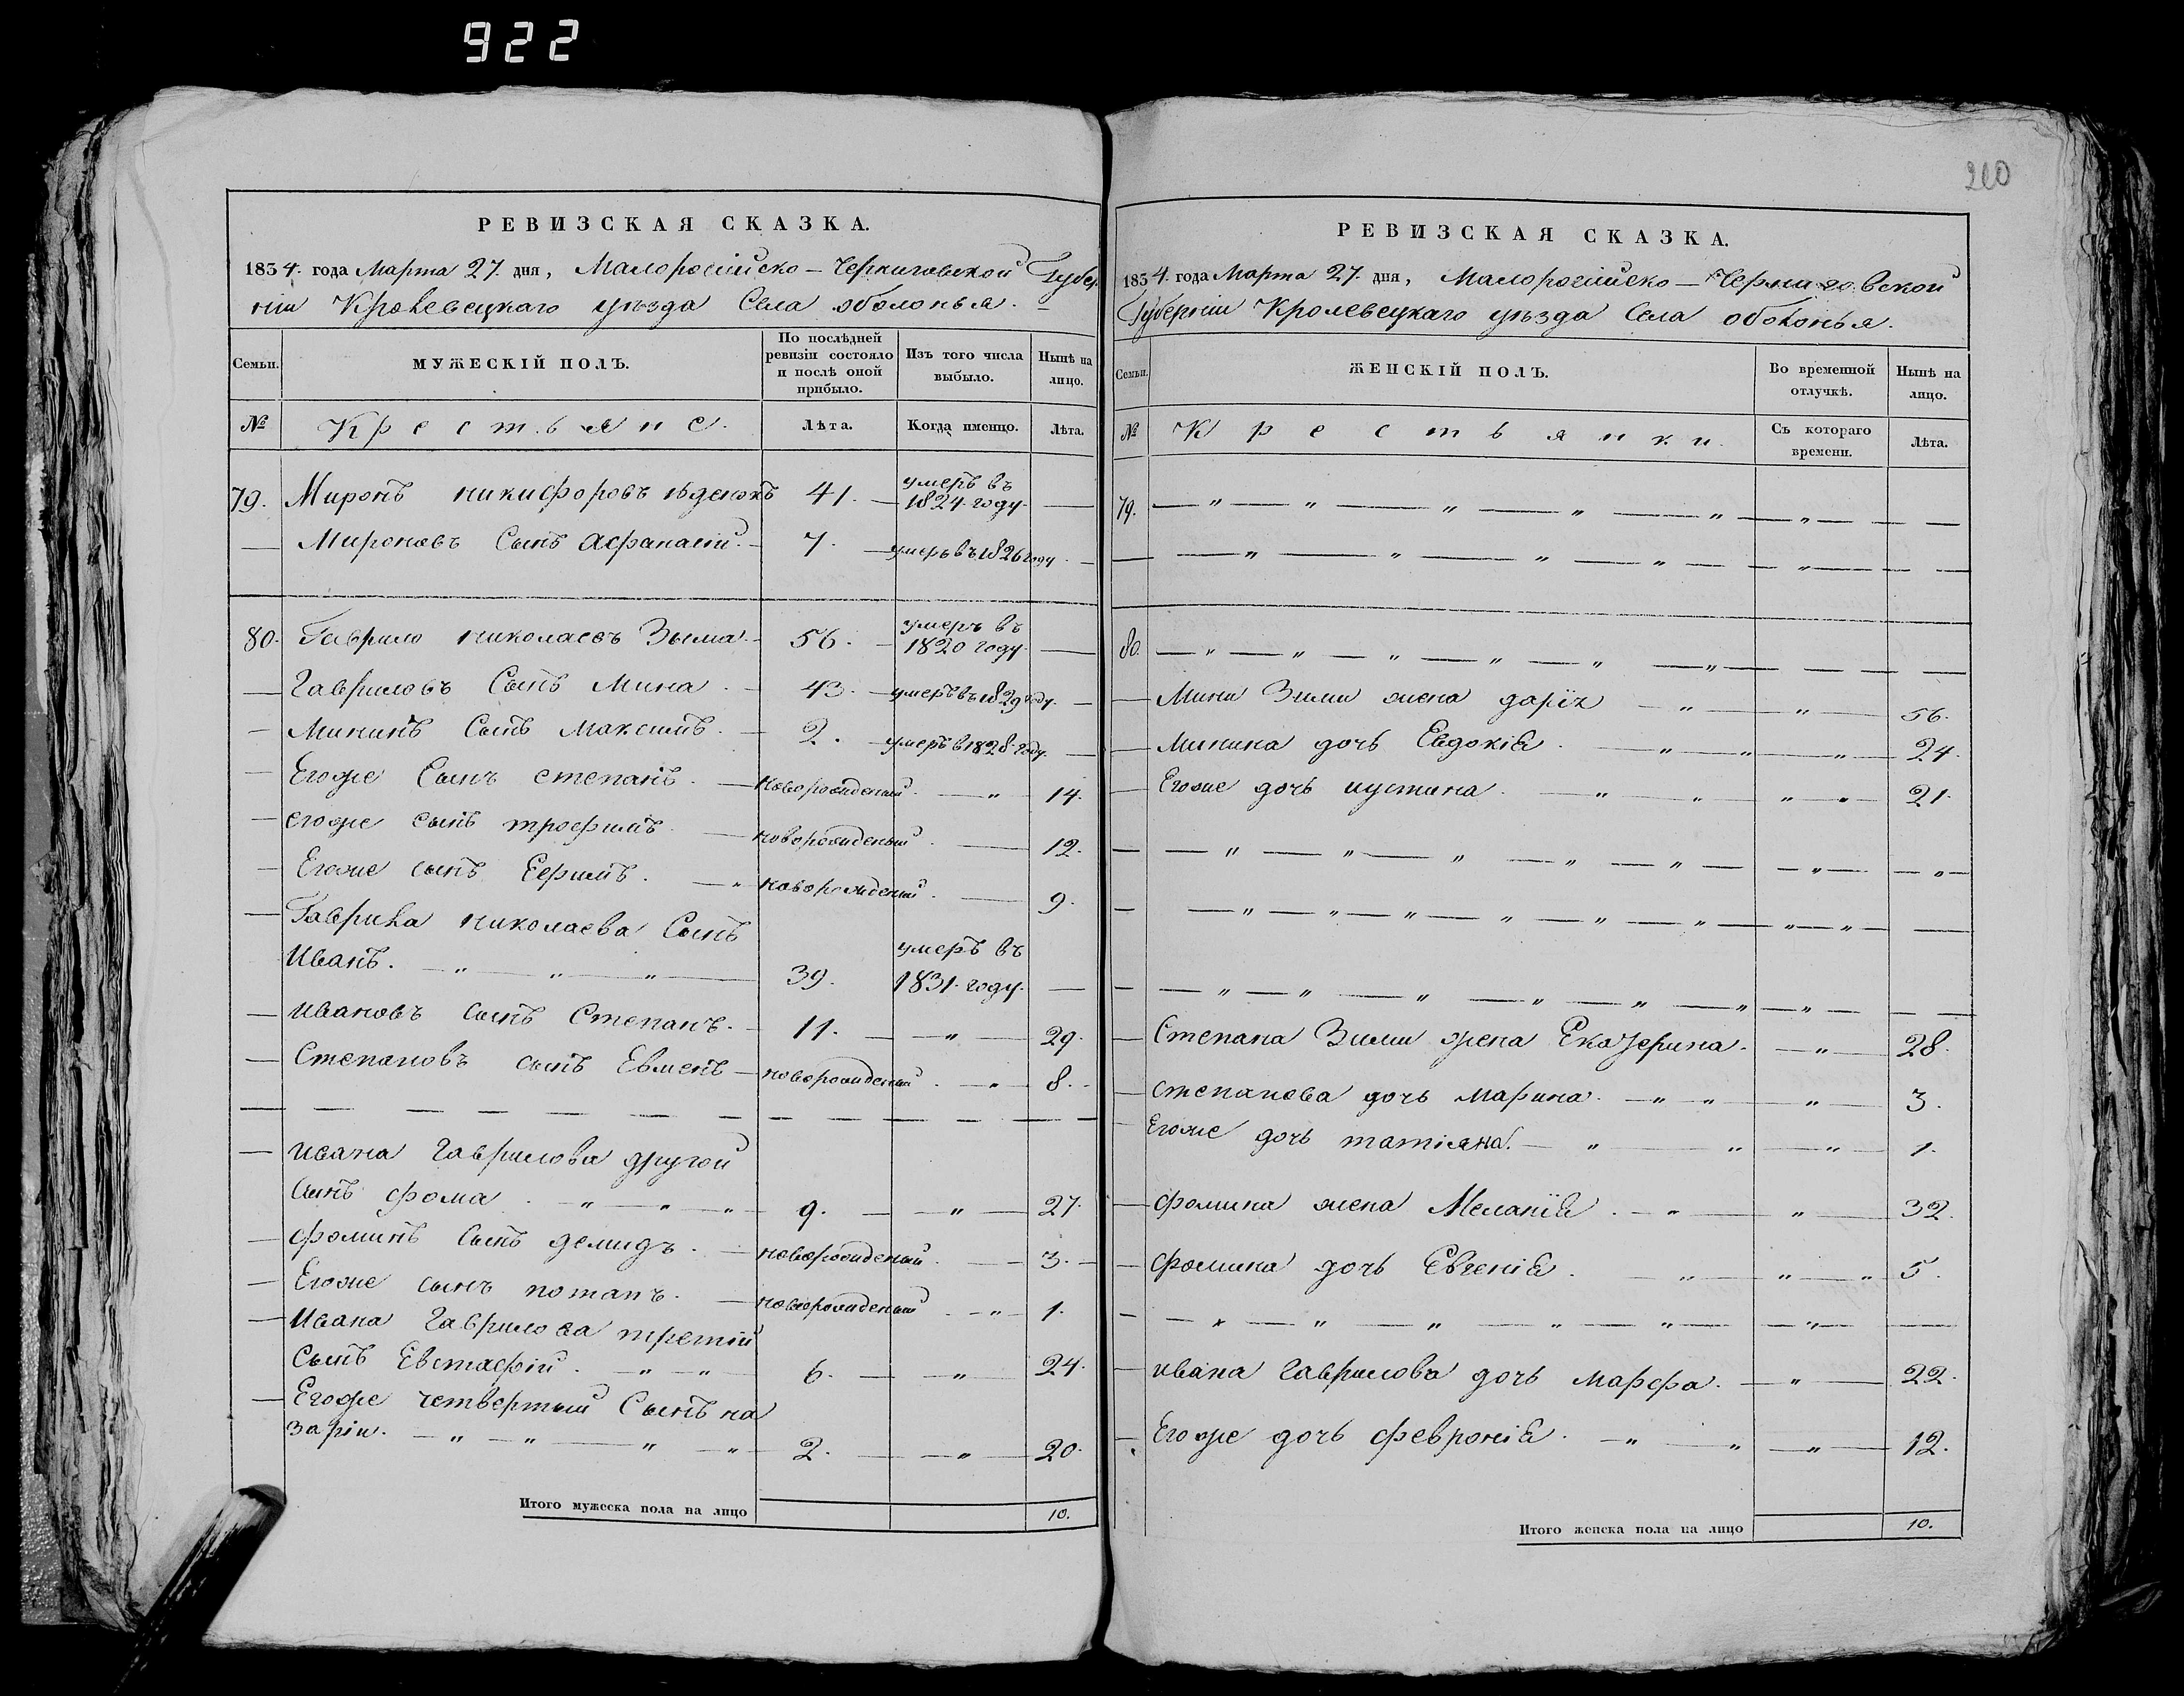 922
210
РЕВИЗСКАЯ СКАЗКА.
1834. года Марта 27. дня, Малоросійско-Черниговской Губер
ніи Кролевецкаго уѣзда Села оболонья.
Семьи.
МУЖЕСКІЙ ПОЛЪ.
По послѣдней ревизіи состояло и послѣ оной прибыло.
Изъ того числа выбыло.
Нынѣ на лицо.
№
Крестьяне.
Лѣта.
Когда именно.
Лѣта.
79. Миронъ никифоровъ 41. умеръ въ 1824. году.
Мироновъ Сынъ Афанасій. 7. умеръ въ 1826 году.
80. Гаврило николаевъ Зыма. 56. умеръ въ 1820 году.
Гавриловъ Сынъ Мина. 43. умеръ въ 1829 году.
Мининъ Сынъ Максимъ. 2. умеръ в 1828. году.
Егоже Сынъ степанъ. новорожденый. " 14.
егоже сынъ трофимъ. новорожденый. 12.
Егоже сынъ Ефримъ. " новорожденый. 9.
Гаврила николаева Сынъ
Иванъ. " " " 39. умеръ въ 1831. году.
ивановъ сынъ Степанъ. 11. " 29.
Степановъ сынъ Евменъ новорожденый. " 8.
ивана Гаврилова другой
Сынъ фома. " " " 9. " 27.
фоминъ Сынъ демидъ. новорожденый. 3.
Егоже сынъ потапъ. новорожденый. " 1.
Ивана Гаврилова третій
Сынъ Евстафій. " " 6. " 24.
Егоже четвертый Сынъ на
зарій. " " " " 2. " 20.
Итого мужеска пола на лицо 10.
РЕВИЗСКАЯ СКАЗКА.
1834. года Марта 27. дня, Малоросійско-Черниговской
Губерніи Кролевецкаго уѣзда Села оболонья.
Семьи.
ЖЕНСКІЙ ПОЛЪ.
Во временной отлучкѣ.
Нынѣ на лицо.
№
Крестьянки.
Съ котораго времени.
Лѣта.
79. " " " " " "
" " " " "
80. " " " " " "
Мини Зими жена дарія " " 56.
Минина дочь Евдокія. " " " 24.
Егоже дочь иустина. " " " " 21.
" " " " " " "
" " " " " " " "
" " " " " " "
Степана Зими жена Екатерина. " 28.
степанова дочь Марина. " " " 3.
Егоже дочь татіяна. " " " 1.
фомина жена Меланія. " " 32.
фомина дочь Евгенія. " " " 5.
" " " " " "
ивана Гаврилова дочь марфа. " 22.
Егоже дочь февронія. " " " 12.
Итого женска пола на лицо 10.